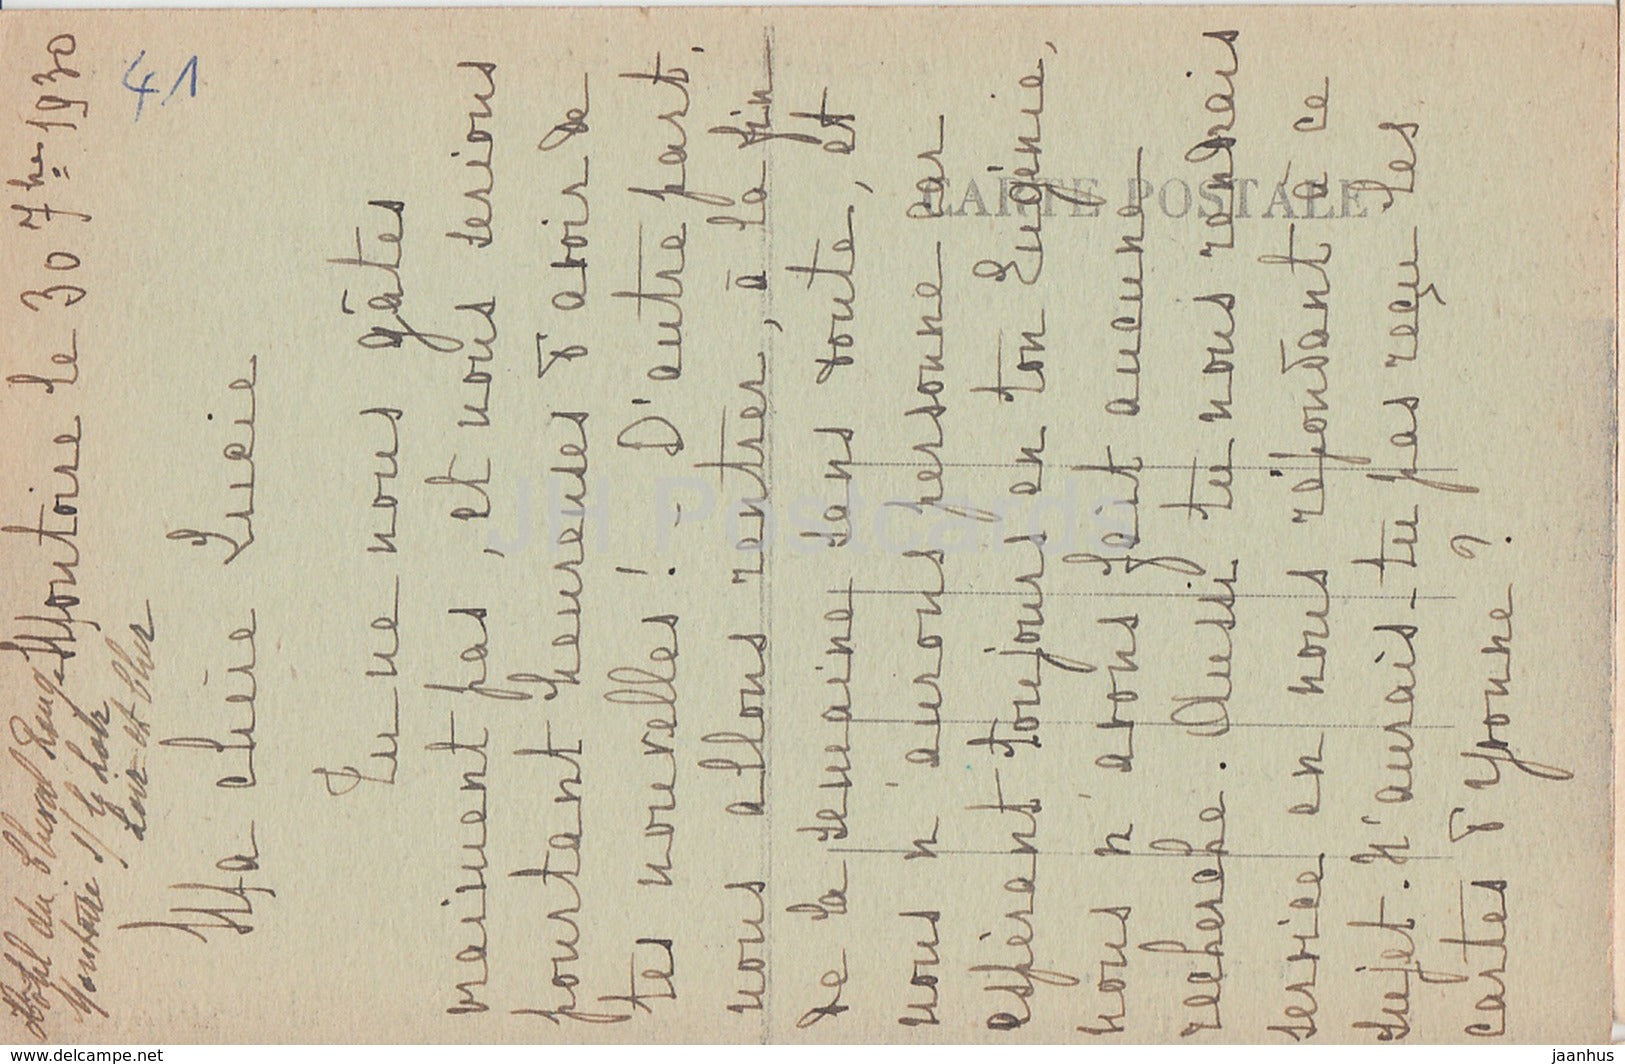 Hôtel du Cheval Rouge
Montoire s/ le Loir
Loir et Cher
Montoire le 30 7bre 1930
41
Ma chère Lucie
Tu ne nous gâtes
vraiment pas, et nous serions
pourtant heureuses d'avoir de
tes nouvelles! - D'autre part.
nous allons rentrer, à la fin
de la semaine sans doute, et
nous n'aurons personne car
espérant toujours en ton Eugénie,
nous n'avons fait aucune
recherche. Aussi tu nous rendrais
service en nous répondant à ce
sujet. N'aurais-tu pas reçu les
cartes d'Yvonne?
CARTE POSTALE
JH Postcards
www.delcampe.net
jaanhus